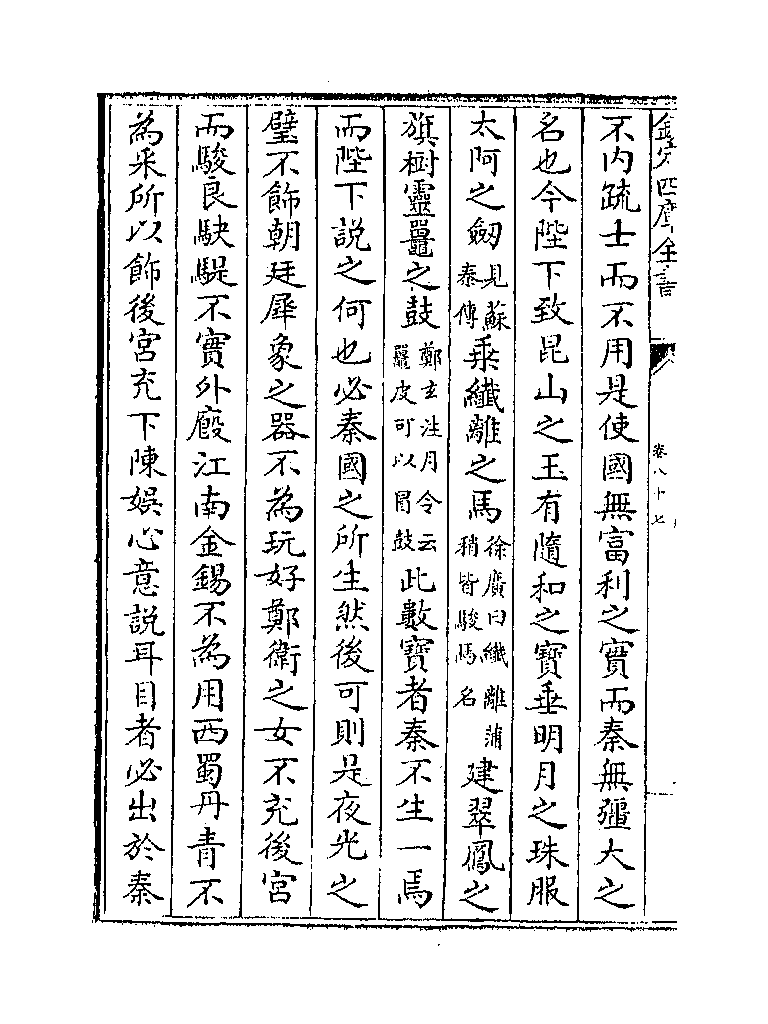 欽定四庫全書
卷八十七
不内疏士而不用是使國無富利之實而秦無彊大之
名也今陛下致昆山之玉有隨和之寶垂明月之珠服
太阿之劔見蘇秦傳乗纖離之馬徐廣曰纖離蒲稍皆駿馬名建翠鳳之
旗樹靈鼉之鼓鄭玄注月令云鼉皮可以冒鼓此數寳者秦不生一焉
而陛下説之何也必秦國之所生然後可則是夜光之
璧不飾朝廷犀象之器不為玩好鄭衛之女不充後宮
而駿良駃騠不實外廐江南金錫不為用西蜀丹青不
為采所以飾後宮充下陳娯心意説耳目者必出於秦